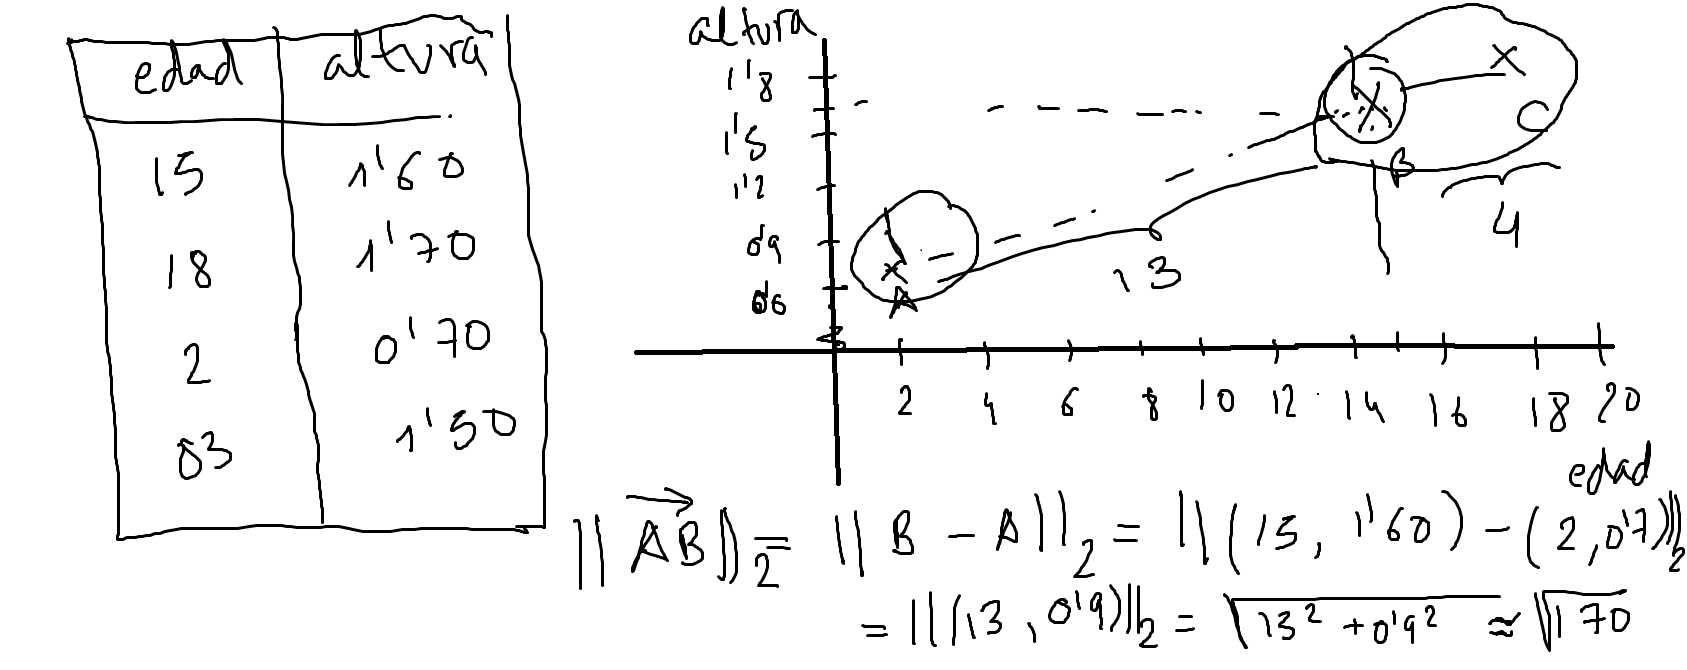 edad altura
15 1'60
18 1'70
2 0'70
03 1'50
altura
1'8
1'5
1'2
0'9
0'6
A
13
B
C
4
2 4 6 8 10 12 14 16 18 20
edad
||AB||₂ = ||B - A||₂ = ||(15, 1'60) - (2, 0'7)||₂
= ||(13, 0'9)||₂ = √13² + 0'9² ≈ √170